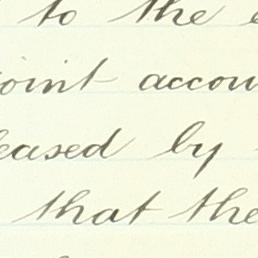 to the
oint accoun
eased by
that the